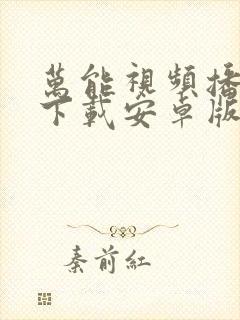 萬能視頻播
下載安卓版
秦前紅